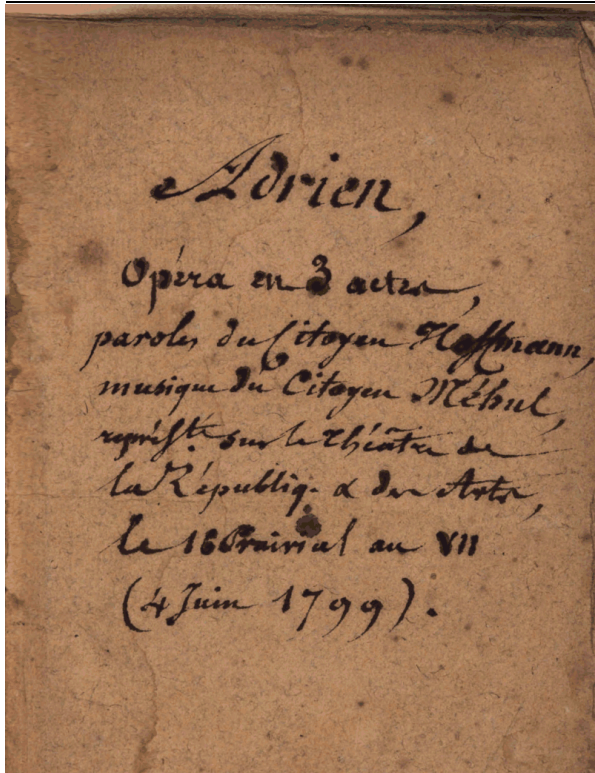 Adrien,
Opéra en 3 actes,
paroles du Citoyen Hoffmann,
musique du Citoyen Méhul,
représté. sur le théâtre de
la Républiq. & des Arts,
le 16 Prairial an VII
(4 Juin 1799).